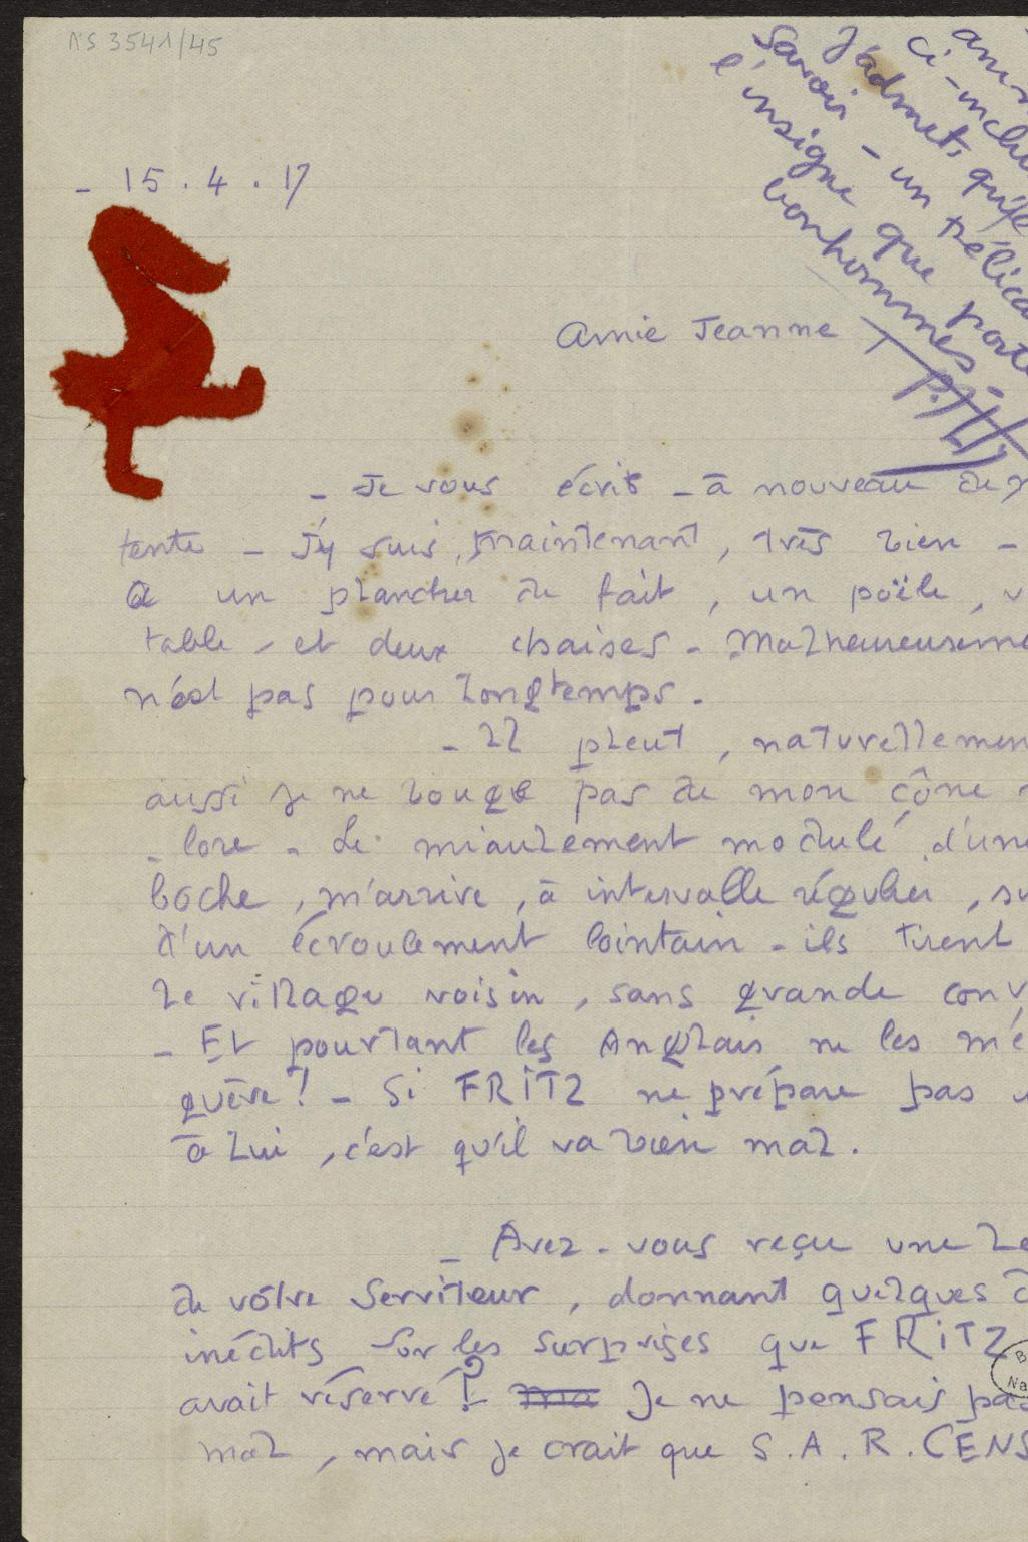 NS 3541/45
- 15 . 4 . 17
amis
ci-inclu
J'admets qu'
Savoir - un Pélica
l'insigne que porte
bonhommes -
P. H.
Amie Jeanne
- Je vous écris - à nouveau de
tente - J'y suis, maintenant, très bien -
a un plancher de fait, un poële,
table - et deux chaises - Malheureuseme
n'est pas pour longtemps -
- Il pleut, naturellemen
aussi je ne bouge pas de mon cône
- lore - Le miaulement modulé d'une
boche, m'arrive, à intervalle régulier, su
d'un écroulement lointain - ils tirent
Le village voisin, sans grande conv
- Et pourtant les Anglais ne les mé
guère ! - Si FRITZ ne prépare pas u
à Lui, c'est qu'il va bien mal.
- Avez-vous reçu une Le
de vôtre Serviteur, donnant quelques d
inédits sur les surprises que FRITZ
avait réservé ? ma Je ne pensais pas
mal, mais je crait que S.A.R. CENS